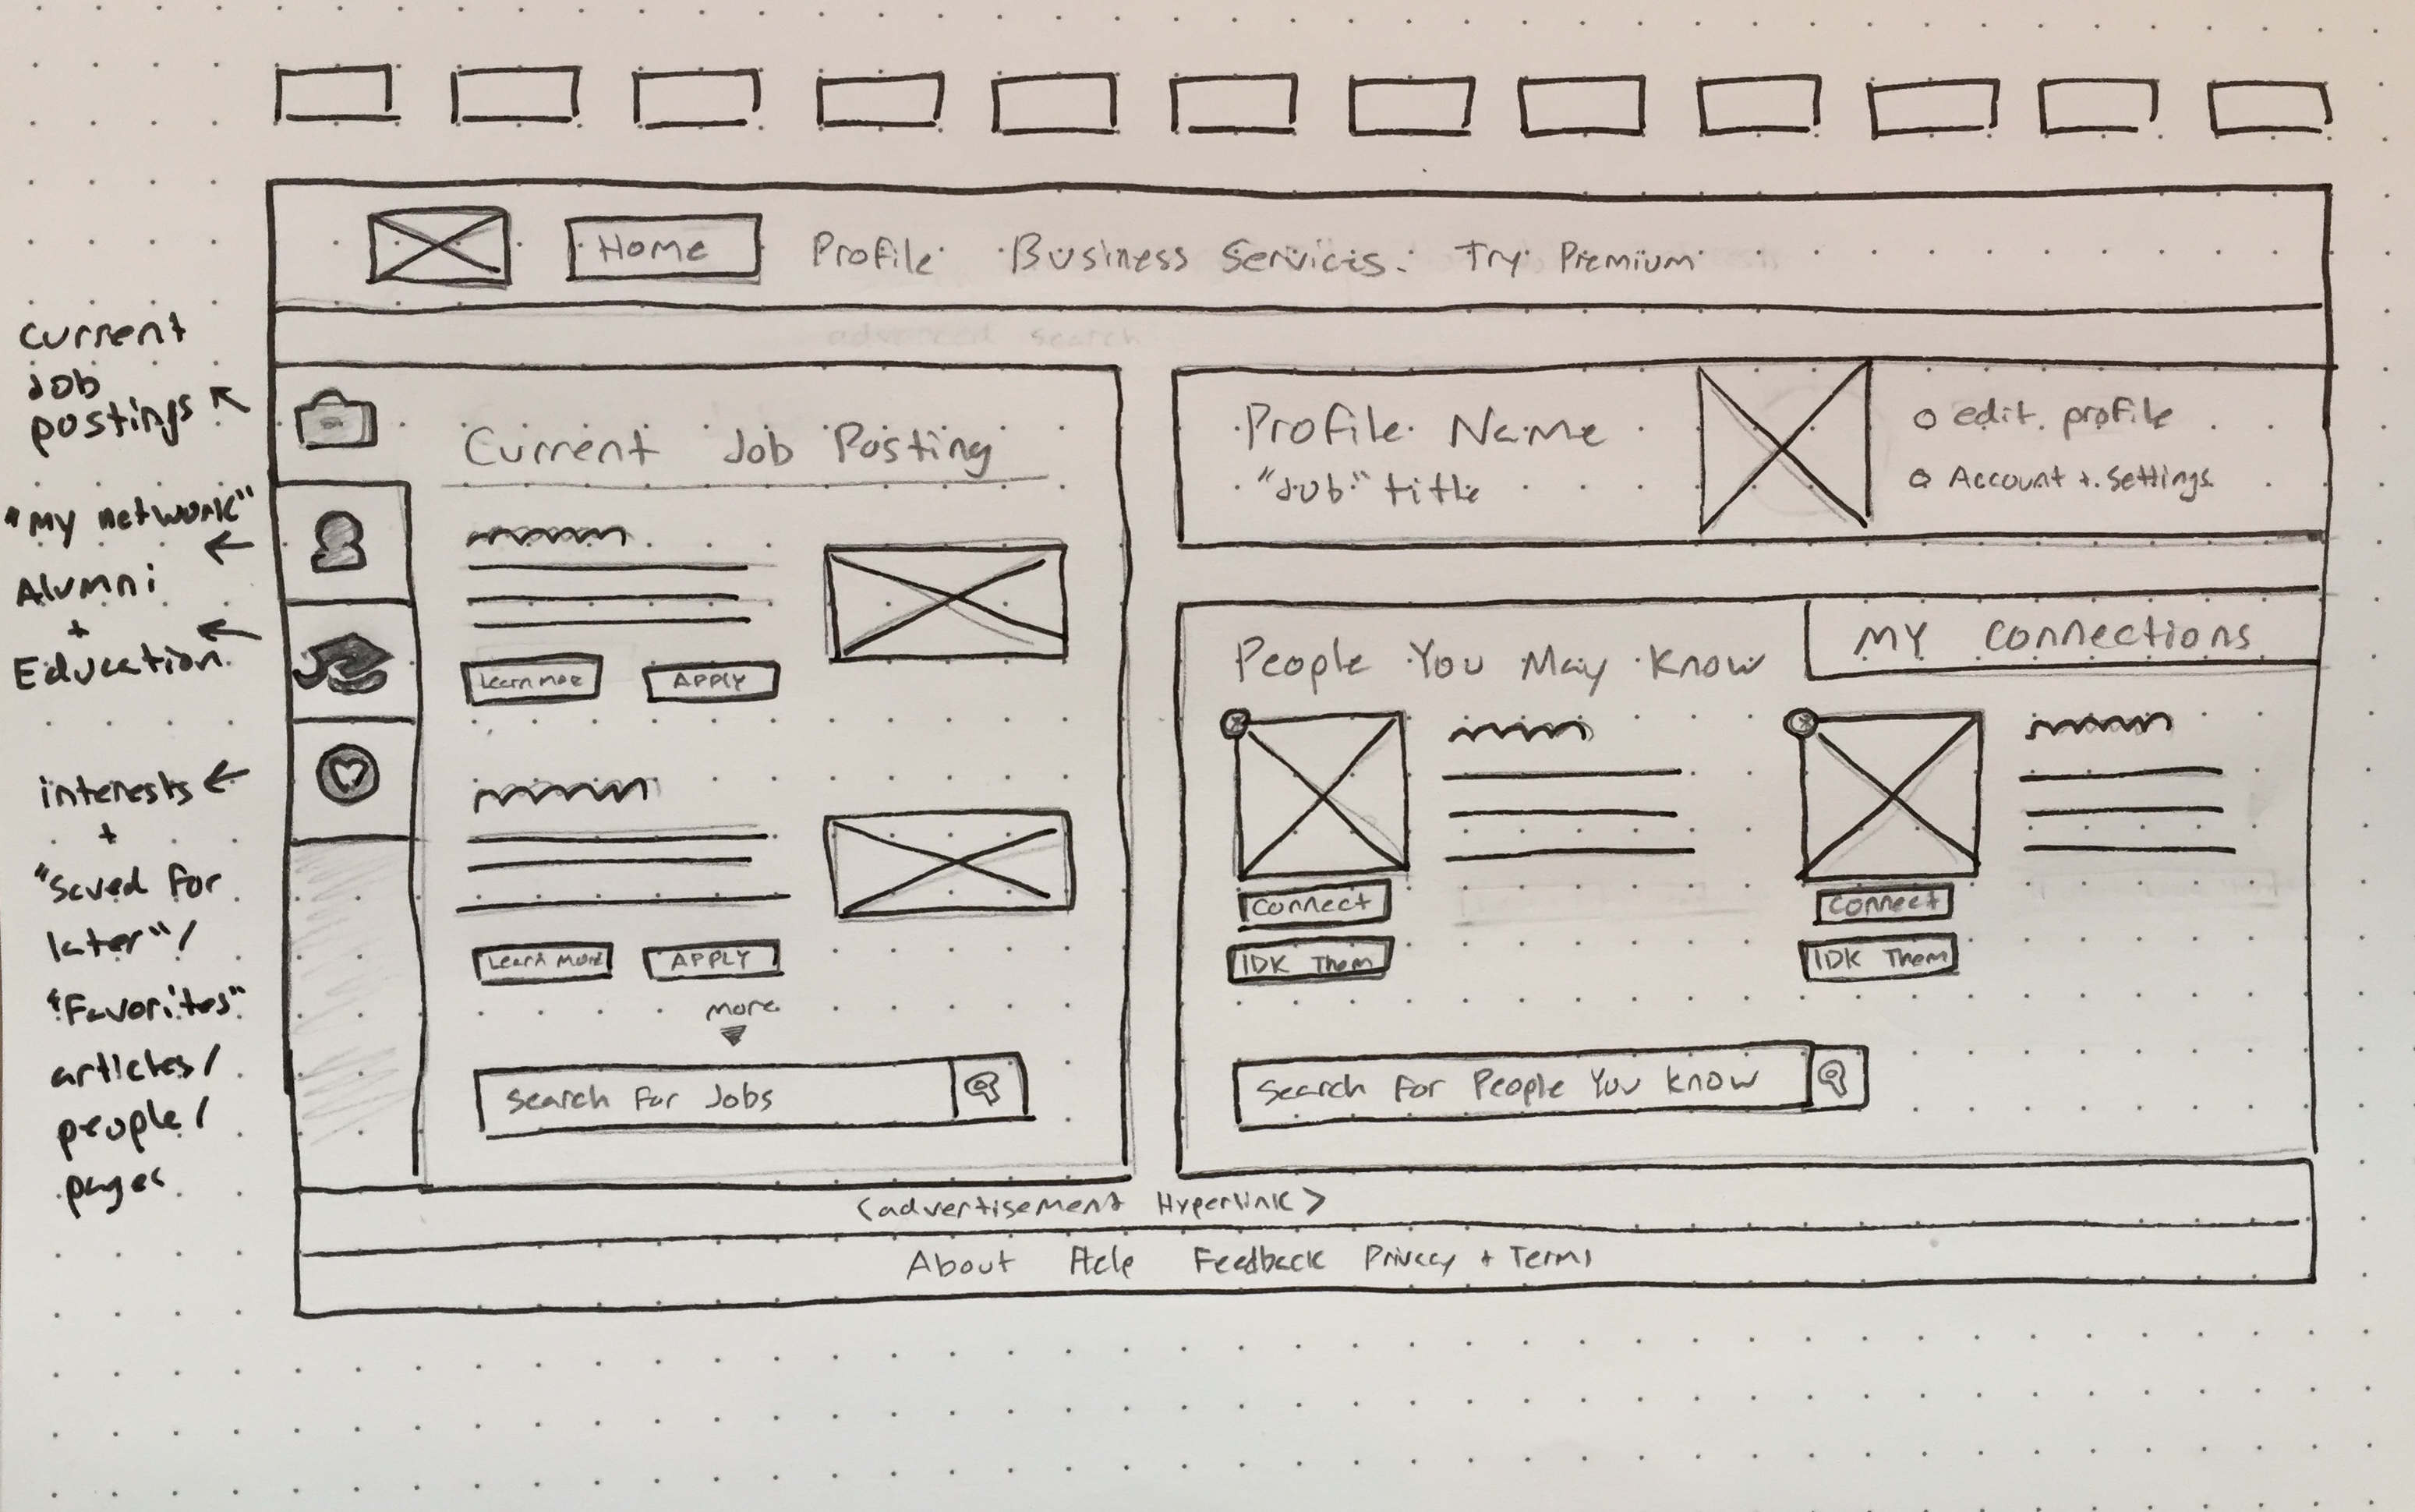 Home Profile Business Services Try Premium
advanced search
Current
Job
postings
"My network"
Alumni
+
Education
interests
+
"Saved for
later"/
"Favorites"
articles/
people/
pages
Current Job Posting
Learn more APPLY
Learn More APPLY
more
Search For Jobs
Profile Name
"Job" title
edit profile
Account + Settings
People You May Know
MY Connections
Connect
IDK Them
Connect
IDK Them
Search For People You Know
<advertisement Hyperlink>
About Help Feedback Privacy + Terms